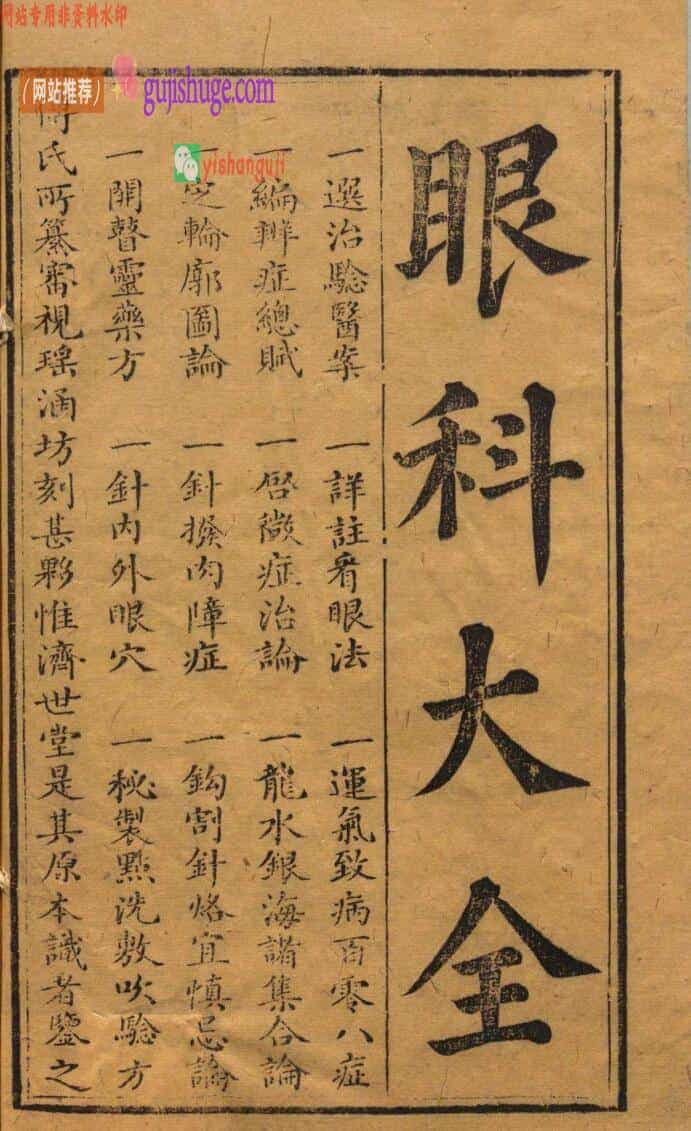 网站专用非资料水印
(网站推荐)
gujishuge.com
yishanguji
眼科大全
一選治驗醫案 一詳註看眼法 一運氣致病百零八症
一編辨症總賦 一啓微症治論 一龍水銀海諸集合論
一定輪廓圖論 一針撥內障症 一鈎割針烙宜慎忌論
一開瞽靈藥方 一針內外眼穴 一秘製點洗敷吹驗方
氏所纂審視瑤涵坊刻甚夥惟濟世堂是其原本識者鑒之